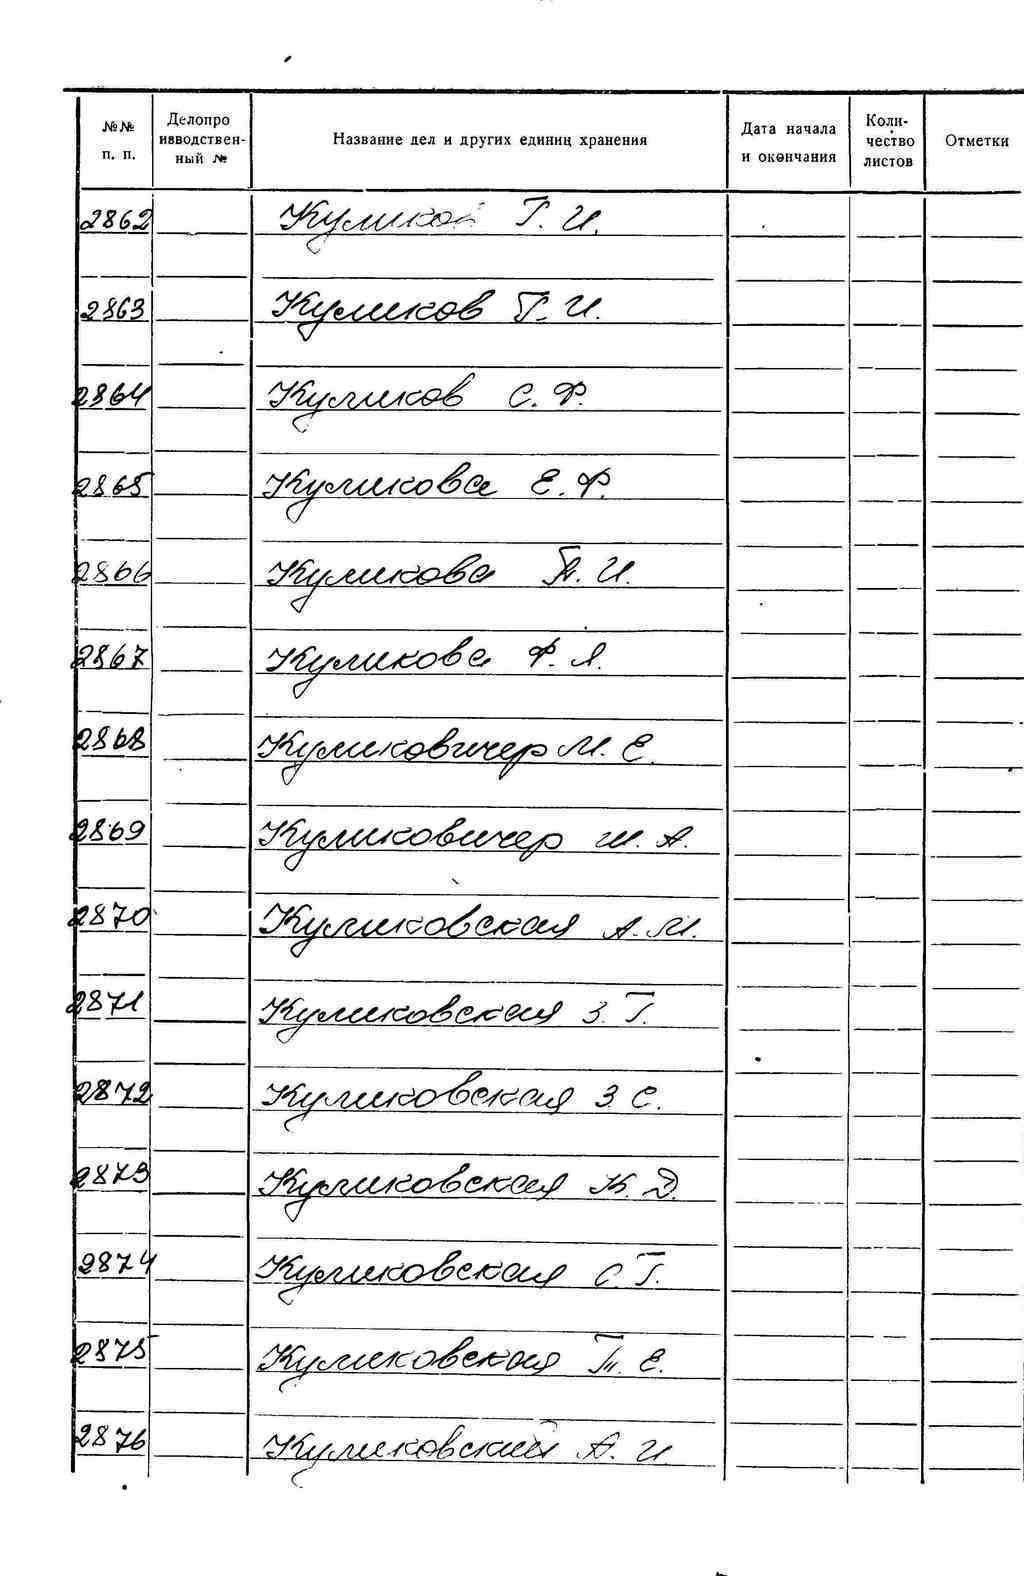 №№ п. п. Делопро изводствен- ный № Название дел и других единиц хранения Дата начала и окончания Коли- чество листов Отметки
2862 Куликов Г. И.
2863 Куликов Г. И.
2864 Куликов С. Ф.
2865 Куликова Е. Ф.
2866 Куликова П. И.
2867 Куликова Ф. Я.
2868 Куликовичер М. Е.
2869 Куликовичер Ш. А.
2870 Куликовская А. М.
2871 Куликовская З. Г.
2872 Куликовская З. С.
2873 Куликовская К. Д.
2874 Куликовская С. Г.
2875 Куликовская Т. Е.
2876 Куликовский А. И.